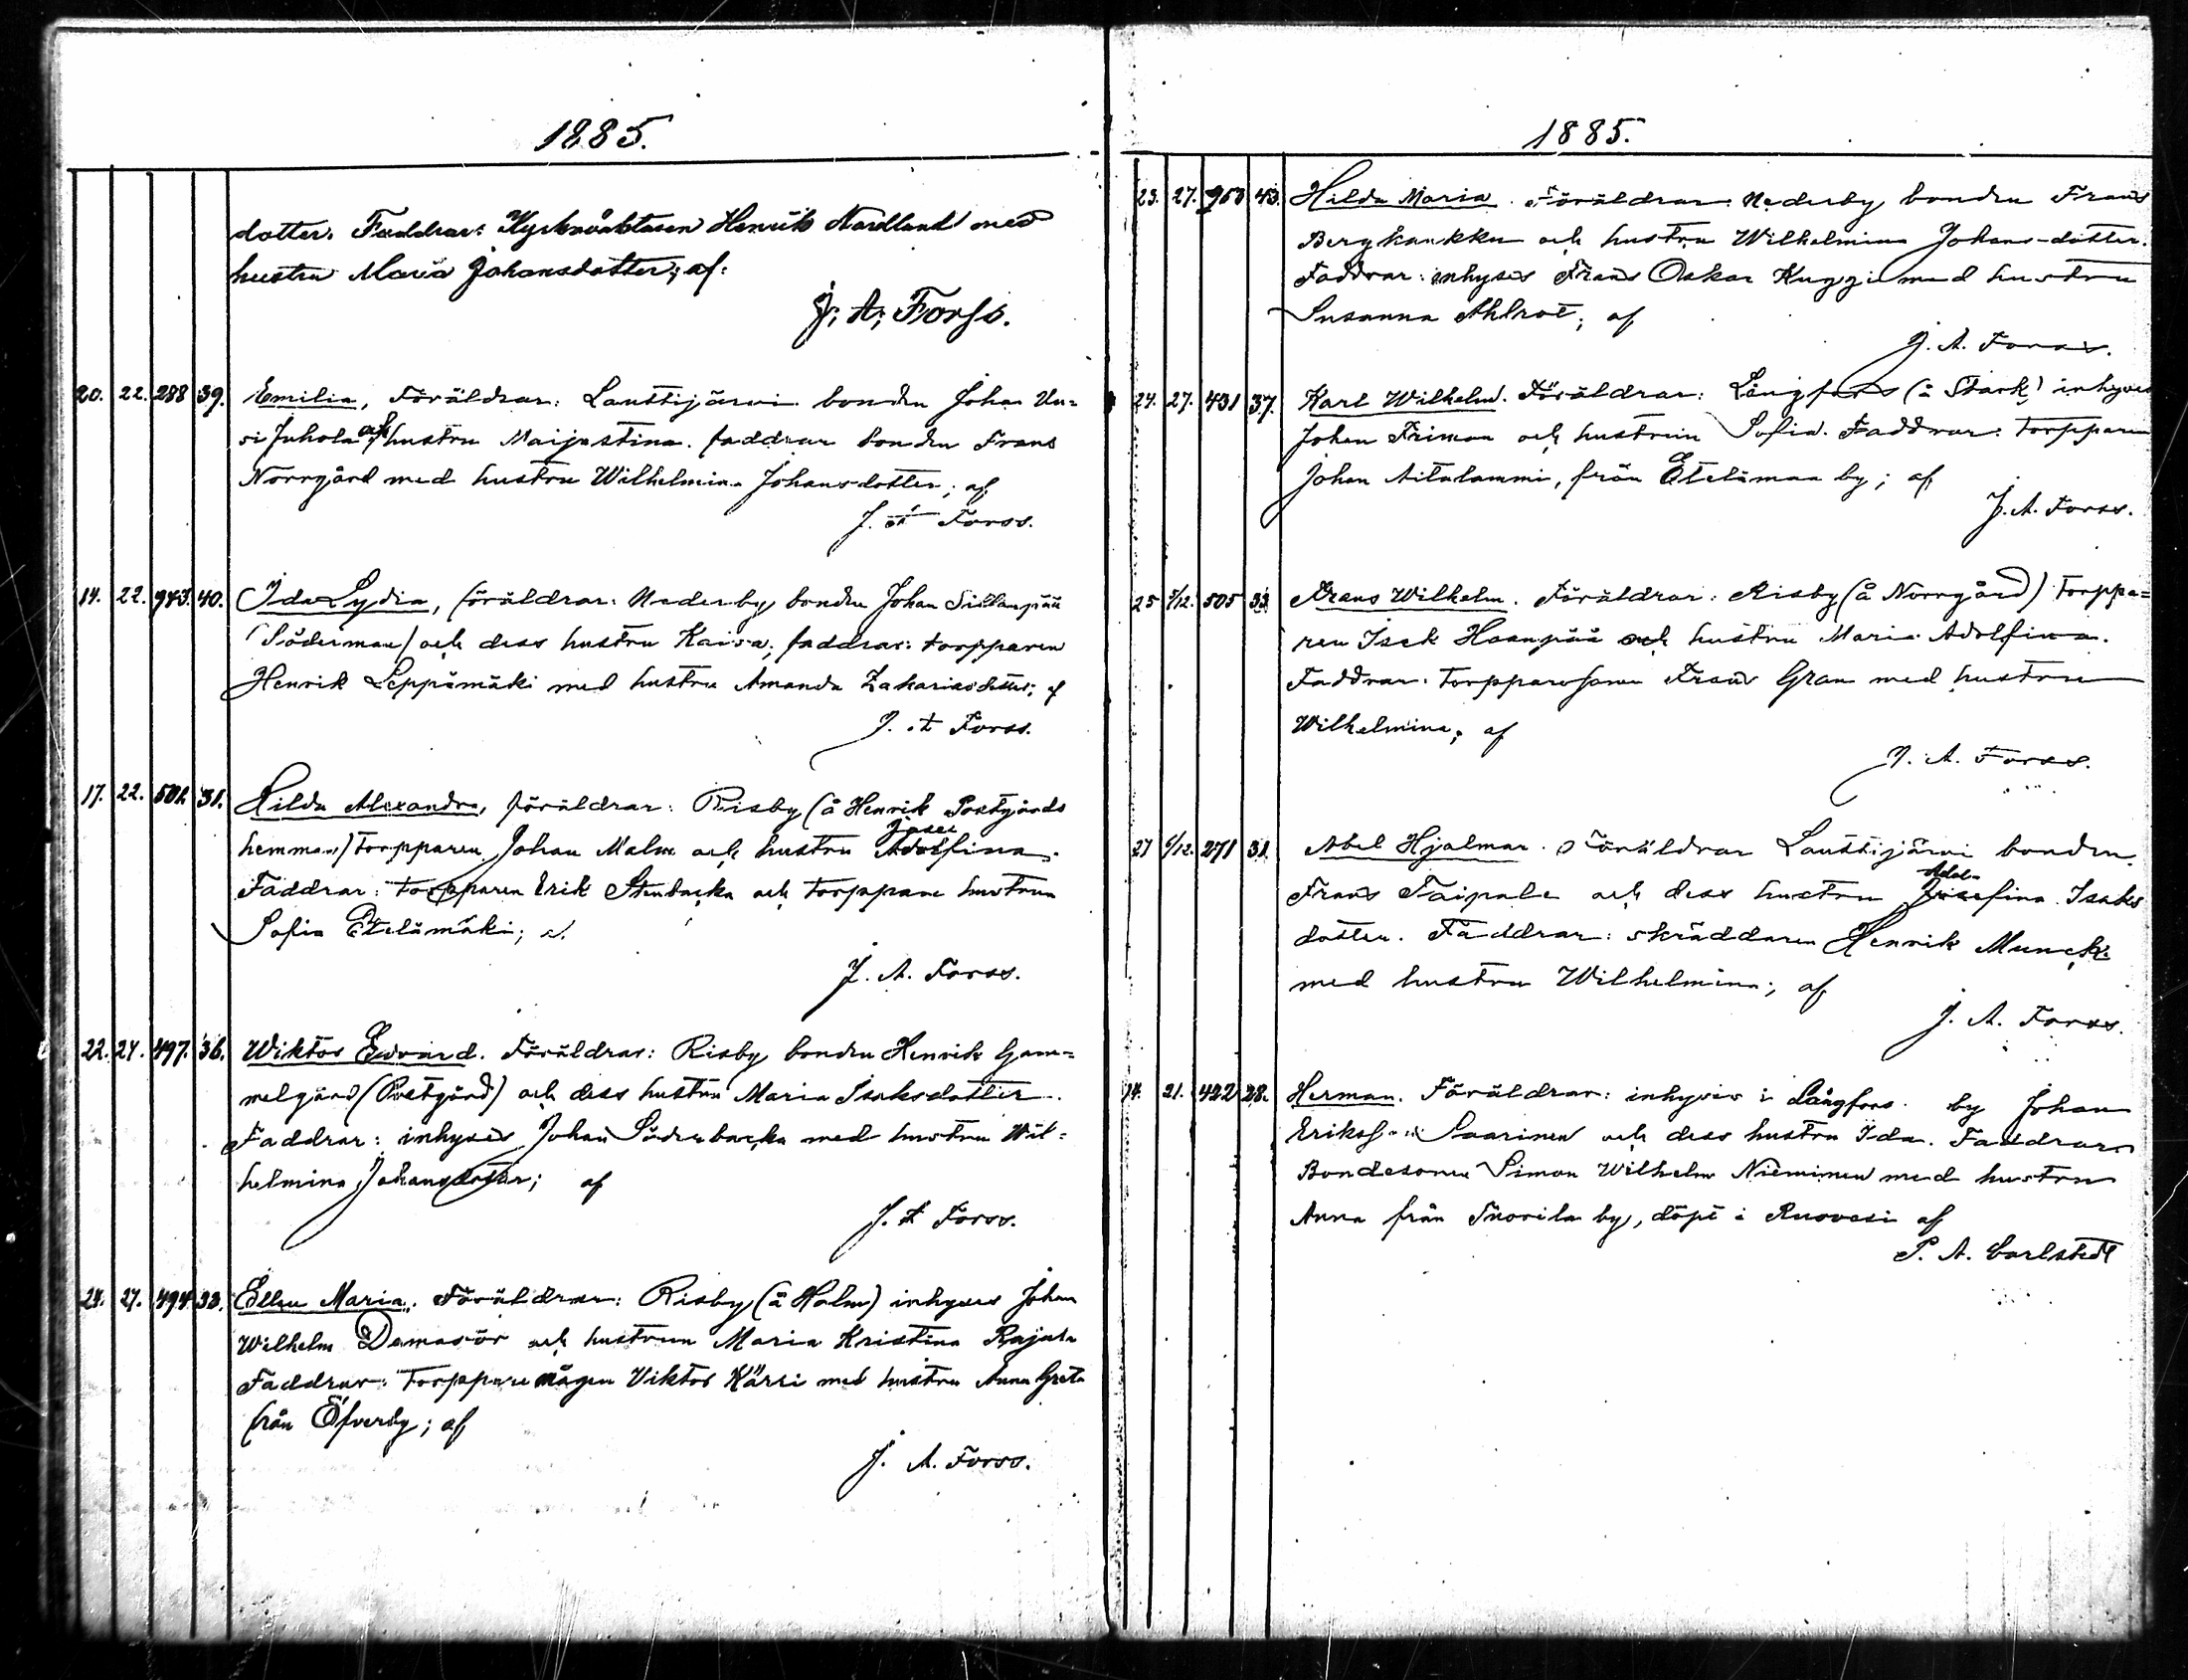 1885.
dotter. Faddrar: Kyrkväktaren Henrik Nordlund med
hustru Maria Johansdotter; af:
J. A. Forss.
20. 22. 288 39. Emilia, Föräldrar: Lauttijärvi bonden Johan Uu-
si Juhola och hustru Maijastina. faddrar bonden Frans
Norrgård med hustru Wilhelmina Johansdotter; af
J. A. Forss.
14. 22. 943. 40. Ida Lydia, föräldrar: Nederby bonden Johan Sillanpää
(Söderman) och dess hustru Kaisa; faddrar: torpparen
Henrik Leppämäki med hustru Amanda Zakariasdotter; af
J. A. Forss.
17. 22. 501. 31. Hilda Alexandra, föräldrar: Risby (å Henrik Postgårds
hemman) torpparen Johan Malm och hustru Josefina.
Faddrar: torpparen Erik Stenbacka och torppare hustrun
Sofia Etelämäki; af
J. A. Forss.
22. 24. 497. 36. Wiktor Edvard. Föräldrar: Risby bonden Henrik Gam-
melgård (Postgård) och dess hustru Maria Isaksdotter.
Faddrar: inhyses Johan Söderbacka med hustru Wil-
helmina Johansdotter; af
J. A. Forss.
24. 27. 494. 33. Ellen Maria. Föräldrar: Risby (å Holm) inhyses Johan
Wilhelm Damasör och hustrun Maria Kristina Rajala
Faddrar: Torppare mågen Viktor Kärri med hustru Anna Greta
från Öfverby; af
J. A. Forss.
1885.
23. 27. 953 43. Hilda Maria. Föräldrar: Nederby bonden Frans
Bergkaukku och hustru Wilhelmina Johans-dotter.
Faddrar: inhyses Frans Oskar Kuggi med hustru
Susanna Ahlrot; af
J. A. Forss.
24. 27. 431 37. Karl Wilhelm. Föräldrar: Långfors (å Stark) inhyses
Johan Friman och hustrun Sofia. Faddrar: torpparen
Johan Aitalammi, från Etelämaa by; af
J. A. Forss.
25 5/12. 505 33. Frans Wilhelm. Föräldrar: Risby (å Norrgård) torppa-
ren Isak Haanpää och hustru Maria Adolfina.
Faddrar: torpparesonen Frans Gran med hustru
Wilhelmina; af
J. A. Forss.
27 6/12. 271 31. Abel Hjalmar. Föräldrar Lauttijärvi bonden
Frans Taipale och dess hustru Adolfina Isaks
dotter. Faddrar: skräddaren Henrik Munck
med hustru Wilhelmina; af
J. A. Forss.
14. 21. 422 28. Herman. Föräldrar: inhyses i Långfors by Johan
Eriksson Saarinen och dess hustru Ida. Faddrar:
Bondesonen Simon Wilhelm Nieminen med hustru
Anna från Tuorila by, döpt i Ruovesi af
P. A. Carlstedt